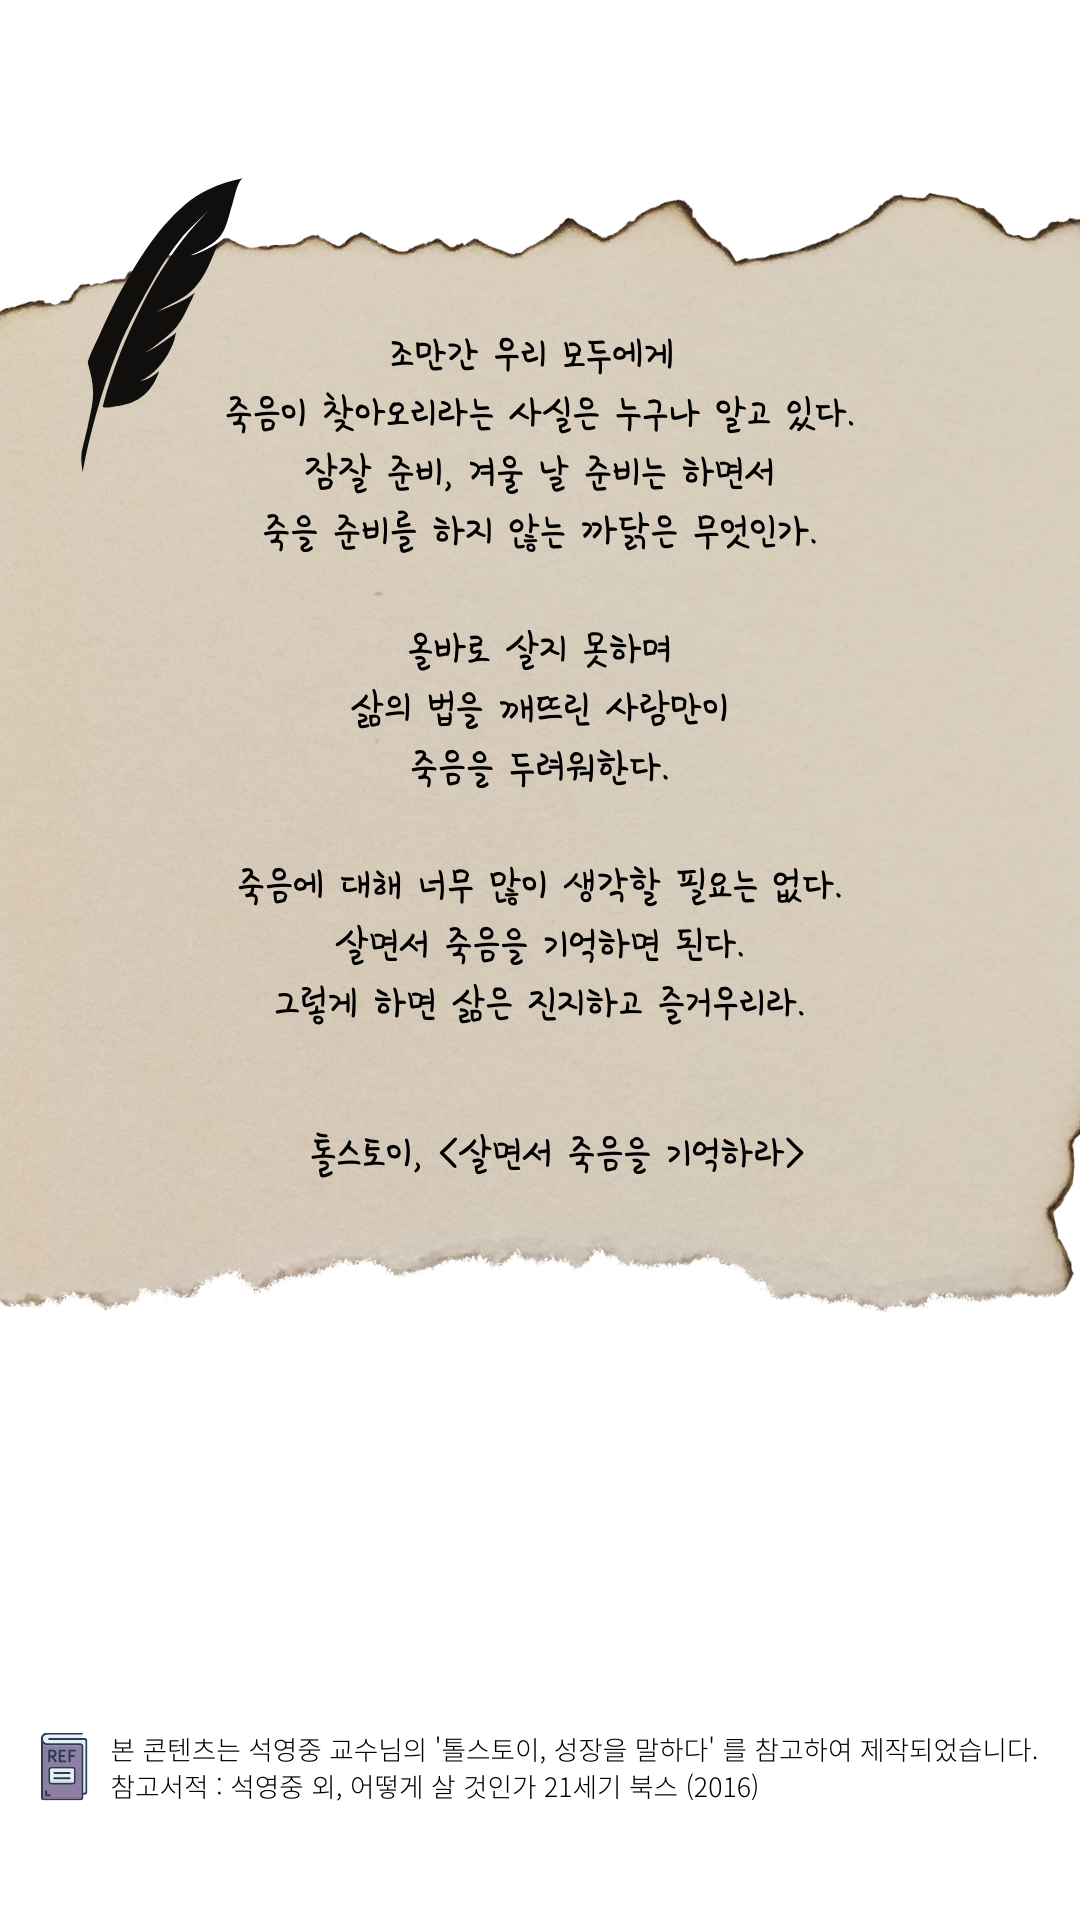 조만간 우리 모두에게
죽음이 찾아오리라는 사실은 누구나 알고 있다.
잠잘 준비, 겨울 날 준비는 하면서
죽을 준비를 하지 않는 까닭은 무엇인가.
올바로 살지 못하며
삶의 법을 깨뜨린 사람만이
죽음을 두려워한다.
죽음에 대해 너무 많이 생각할 필요는 없다.
살면서 죽음을 기억하면 된다.
그렇게 하면 삶은 진지하고 즐거우리라.
톨스토이, <살면서 죽음을 기억하라>
REF
본 콘텐츠는 석영중 교수님의 '톨스토이, 성장을 말하다' 를 참고하여 제작되었습니다.
참고서적 : 석영중 외, 어떻게 살 것인가 21세기 북스 (2016)